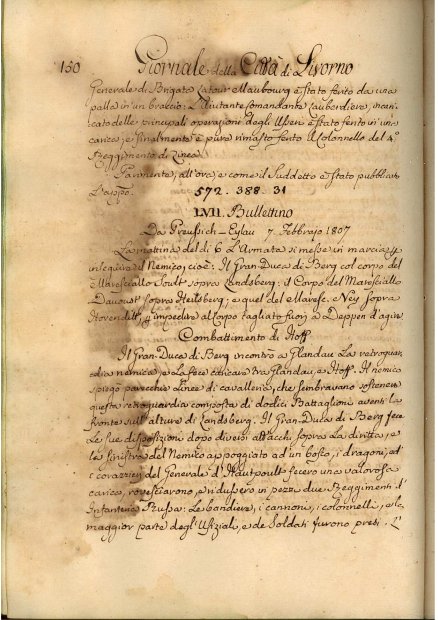 150 Giornale della Città di Livorno
Generale di Brigata Latour Maubourg è stato ferito da una
palla in un braccio: L'Aiutante Comandante Lauberdiere, incari-
cato delle principali operazioni degli Usseri è stato ferito in una
carica; e finalmente è pure rimasto ferito il Colonnello del 4°
Reggimento di Linea.
Parimente, all'ora e come il Suddetto è stato pubblicato
L'appo.
572. 388. 31
LVII. Bullettino
Da Preussich-Eylau 7. Febbrajo 1807
La mattina del dì 6 L'Armata si messe in marcia p
inseguire il Nemico; cioè: Il Gran-Duca di Berg col corpo del
Maresciallo Soult sopra Landsberg, il Corpo del Maresciallo
Davoust sopra Heilsberg; e quel del Maresc. Ney sopra
impedire al Corpo tagliato fuori a Deppen d'agire
Combattimento di Hoff
Il Gran-Duca di Berg incontrò a Glandau La retroguar-
dia nemica, e La fece caricare tra Glandau, e Hoff. Il nemico
spiegò parecchie Linee di cavalleria, che sembravano sostenere
questa retroguardia composta di dodici Battaglioni aventi la
fronte sull'alture di Landsberg. Il Gran-Duca di Berg fece
Le sue disposizioni dopo diversi attacchi sopra La diritta, e
la sinistra del Nemico appoggiato ad un bosco, i dragoni, ed
i corazzieri del Generale d'Hautpoult fecero una valorosa
carica, rovesciarono, e ridussero in pezzi due Reggimenti d'
Infanteria Russa: Le bandiere, i cannoni, i colonnelli, e la
maggior parte degl'Ufiziali, e de Soldati furono presi. L'